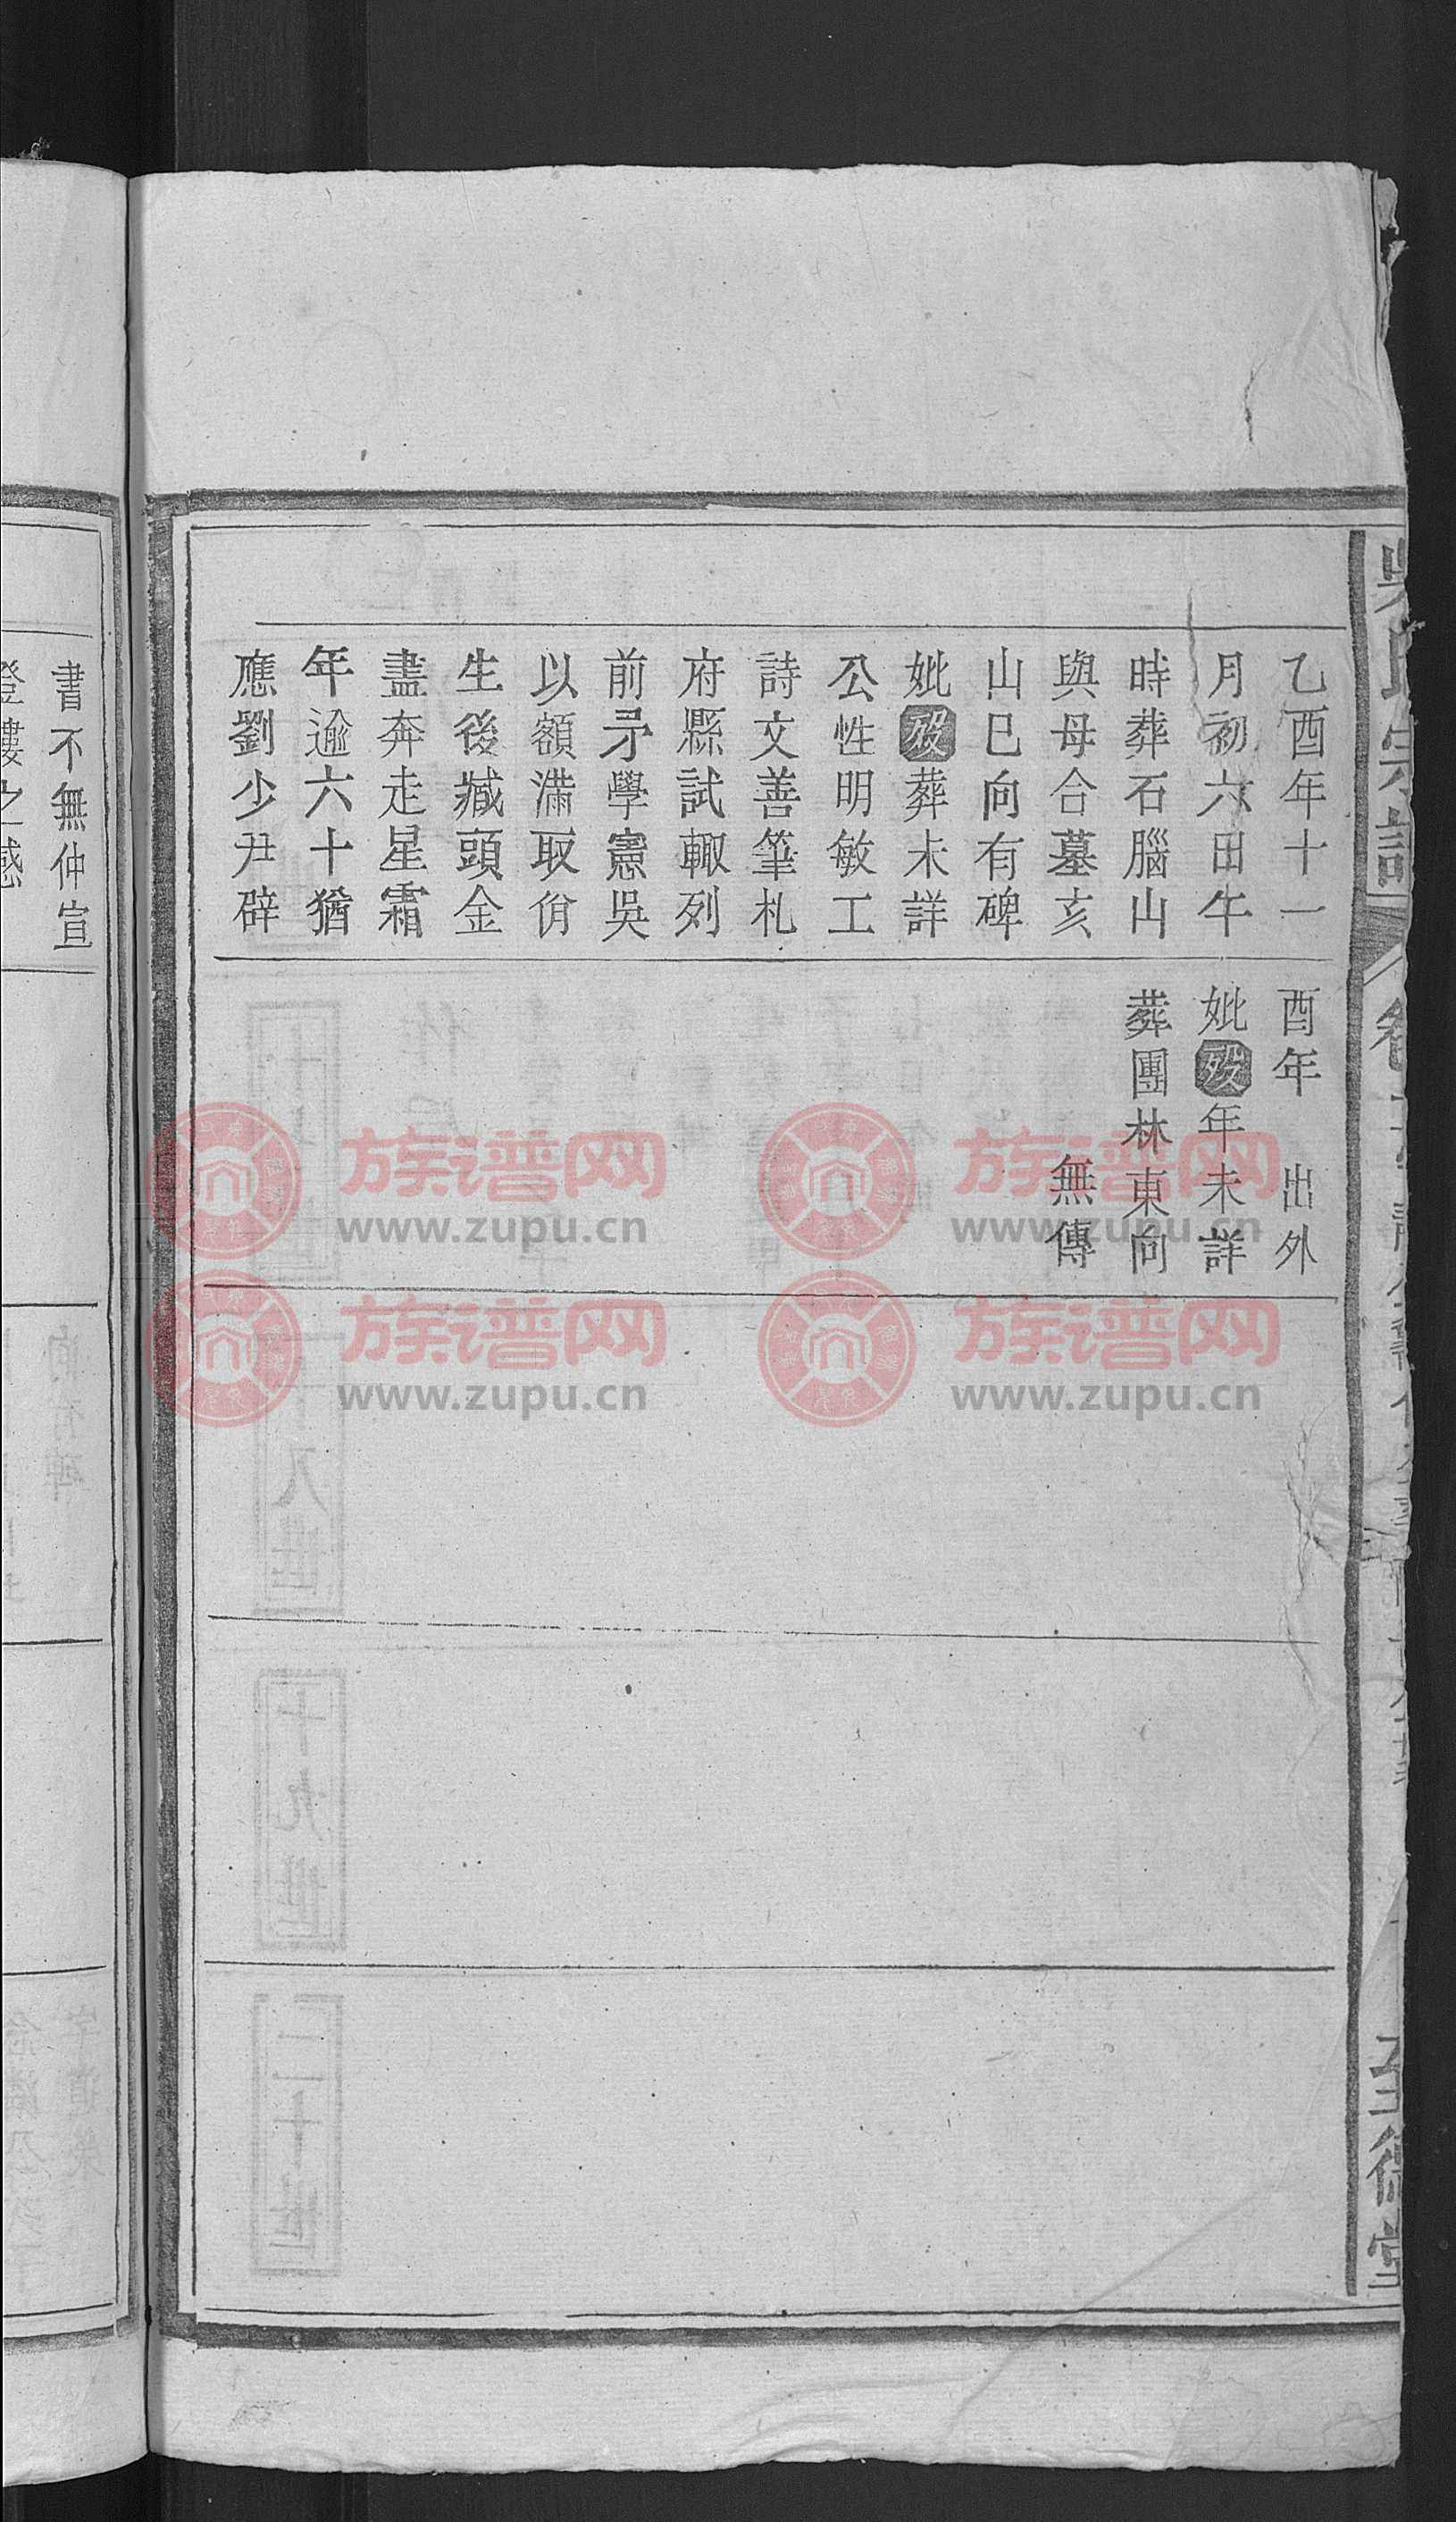 乙酉年十一
月初六日午
時葬石腦山
與母合墓亥
山巳向有碑
妣歿葬未詳
公性明敏工
詩文善筆札
府縣試輙列
前矛學憲吳
以額滿取佾
生後臧頭金
盡奔走星霜
年逾六十猶
應劉少尹辟
酉年 出外
妣歿年未詳
葬團林東向
無傳
書不無仲宣
登樓之感
至德堂
族谱网
www.zupu.cn
族谱网
www.zupu.cn
族谱网
www.zupu.cn
族谱网
www.zupu.cn